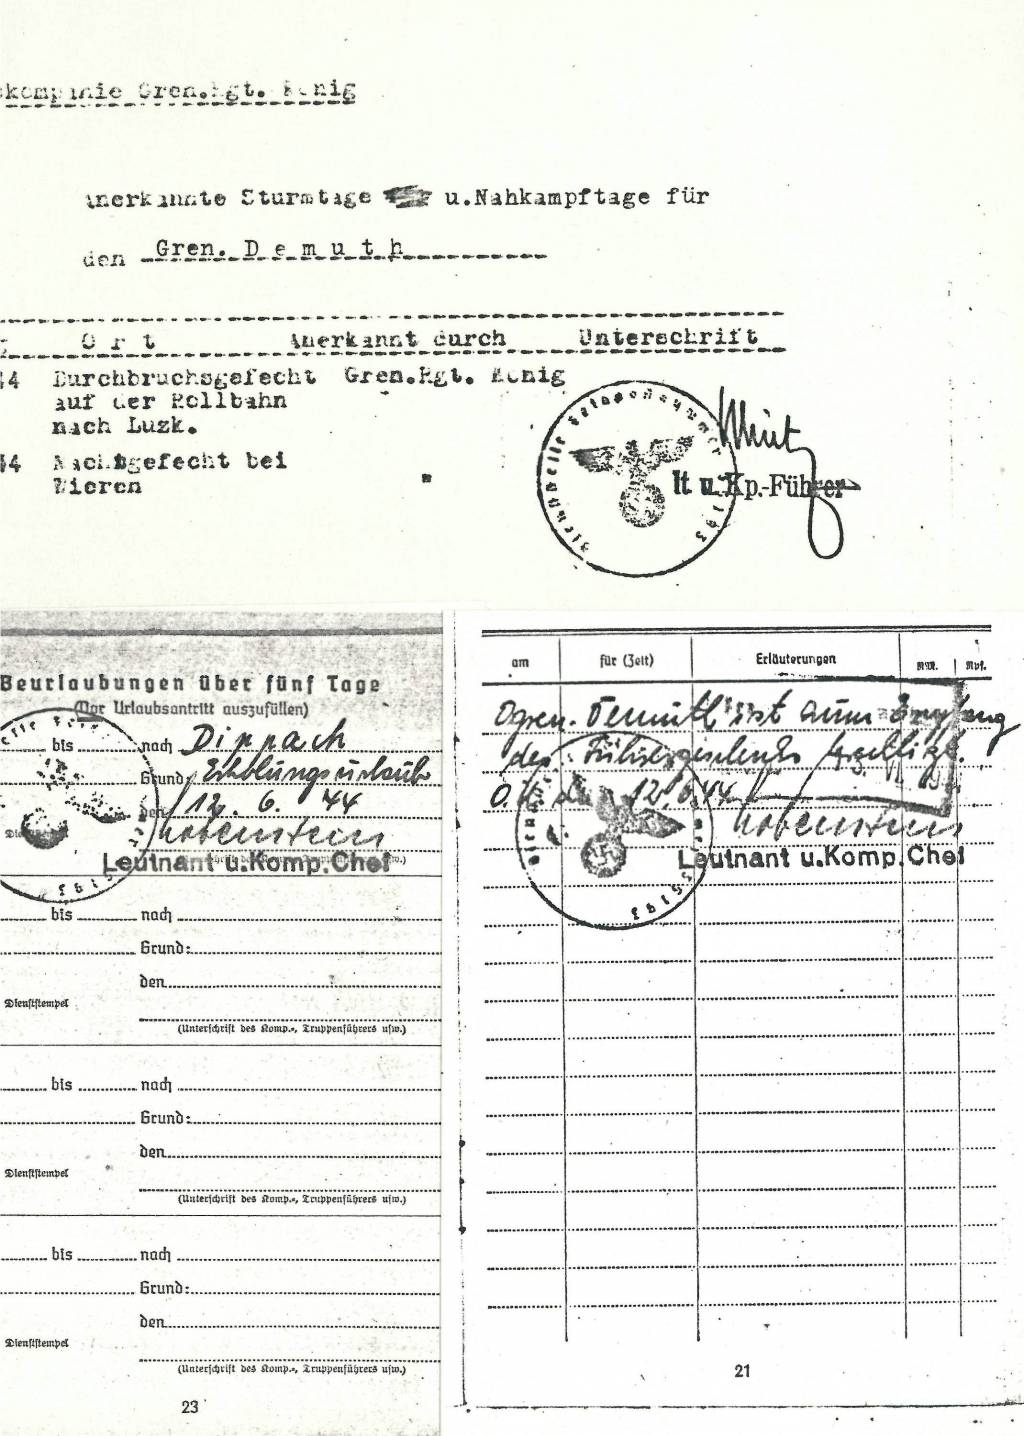 kompanie Gren.Rgt. König
Anerkannte Sturmtage u.Nahkampftage für
den Gren. D e m u t h
O r t Anerkannt durch Unterschrift
44 Durchbruchsgefecht Gren.Rgt. König
auf der Rollbahn
nach Luzk.
44 Nachtgefecht bei "
lt u. Kp.-Führer
Beurlaubungen über fünf Tage
(Vor Urlaubsantritt auszufüllen)
bis nach Dippach
Grund: Erholungsurlaub
den 12. 6. 44
Hobenstein
Leutnant u.Komp.Chef
bis nach
Grund:
den
Dienststempel
(Unterschrift des Komp.-, Truppenführers usw.)
bis nach
Grund:
den
Dienststempel
(Unterschrift des Komp.-, Truppenführers usw.)
bis nach
Grund:
den
Dienststempel
(Unterschrift des Komp.-, Truppenführers usw.)
23
am für (Zeit) Erläuterungen RM. Rpf.
Ogren. Demuth ist zum Empfang
des Führergeschenks berechtigt.
O.U. den 12.6.44
Hobenstein
Leutnant u.Komp.Chef
21